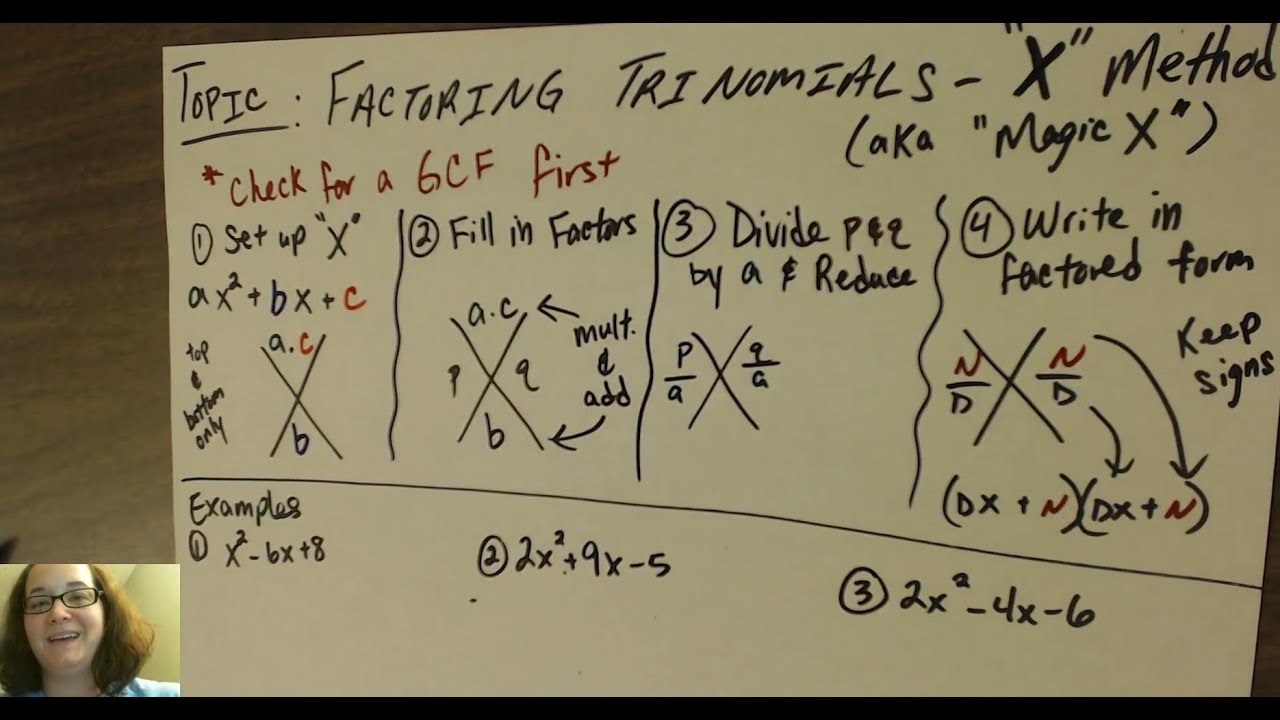 Topic: Factoring Trinomials - "X" Method
(aka "Magic X")
*Check for a GCF first
① Set up "X"
ax² + bx + c
top
&
bottom
only
a.c
b
② Fill in Factors
a.c
p
q
b
mult.
&
add
③ Divide p & q
by a & Reduce
p/a
q/a
④ Write in
factored form
N/D
N/D
Keep
signs
(Dx + N)(Dx + N)
Examples
① x² - 6x + 8
② 2x² + 9x - 5
③ 2x² - 4x - 6